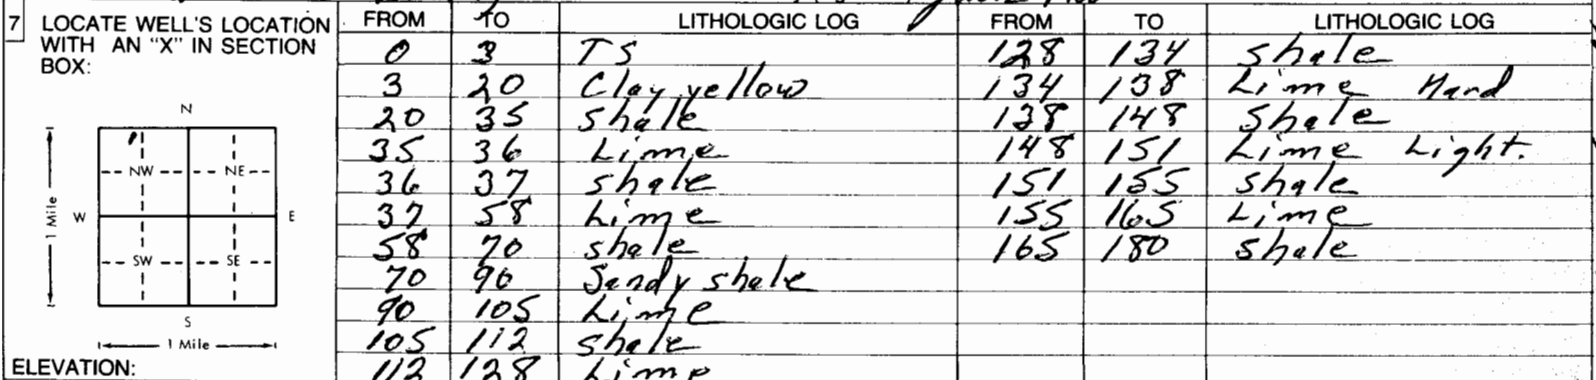 7 LOCATE WELL'S LOCATION WITH AN "X" IN SECTION BOX:
N
NW NE
W E
SW SE
S
1 Mile
1 Mile
ELEVATION:
FROM TO LITHOLOGIC LOG FROM TO LITHOLOGIC LOG
0 3 TS 128 134 Shale
3 20 Clay yellow 134 138 Lime Hard
20 35 Shale 138 148 Shale
35 36 Lime 148 151 Lime Light.
36 37 Shale 151 155 Shale
37 58 Lime 155 165 Lime
58 70 Shale 165 180 Shale
70 90 Sandy shale
90 105 Lime
105 112 Shale
112 128 Lime